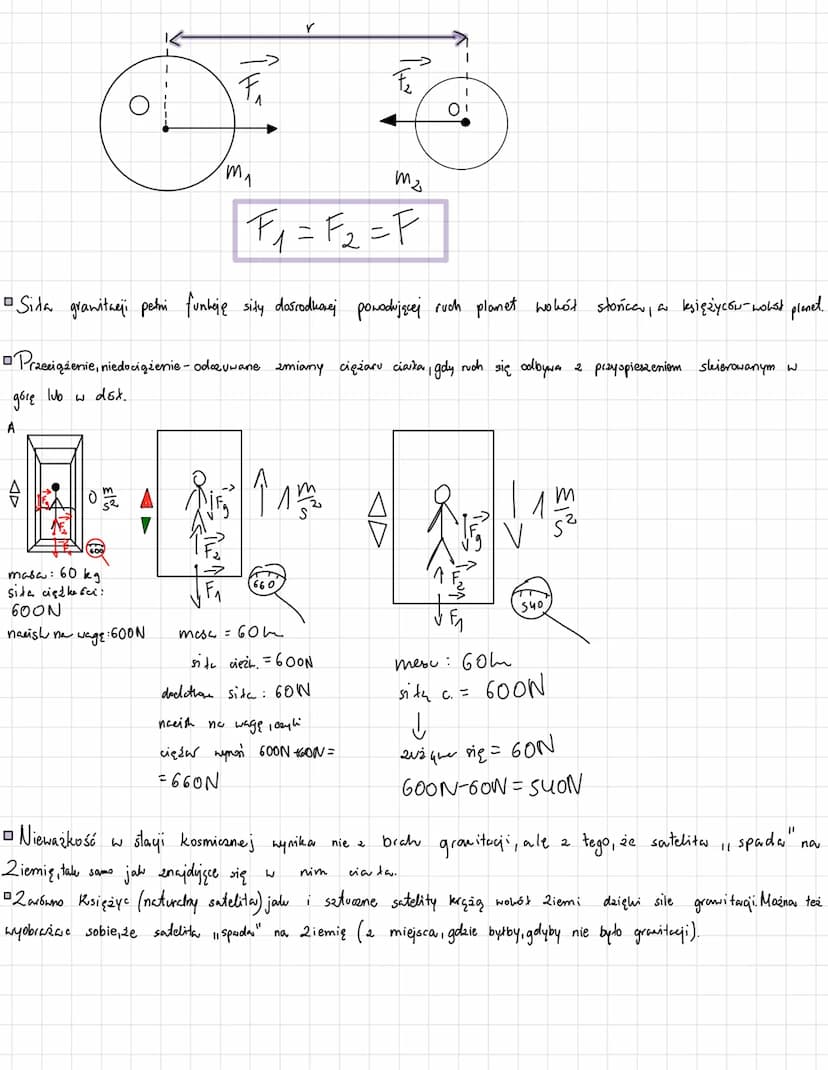 r
F₁
F₂
O
O
m₁
m₂
F₁ = F₂ = F
Siła grawitacji pełni funkcję siły dośrodkowej powodującej ruch planet wokół słońca, a księżyców-wokół planet.
Przeciążenie, niedociążenie - odczuwane zmiany ciężaru ciała, gdy ruch się odbywa z przyspieszeniem skierowanym w
górę lub w dół.
A
Fg
F₂
F₁
0 m/s²
600
Fg
F₂
F₁
1 m/s²
660
Fg
F₂
F₁
1 m/s²
540
masa: 60 kg
siła ciężkości:
600N
nacisk na wagę: 600N
masa = 60
siła cięż. = 600N
dodatkowa siła: 60N
nacisk na wagę, czyli
ciężar wynosi 600N+60N=
=660N
masa: 60
siła c. = 600N
się = 60N
600N-60N = 540N
Nieważkość w stacji kosmicznej wynika nie z braku grawitacji, ale z tego, że satelita „spada" na
Ziemię, tak samo jak znajdujące się w nim ciała.
Zarówno Księżyc (naturalny satelita) jak i sztuczne satelity krążą wokół Ziemi dzięki sile grawitacji. Można też
wyobrażać sobie, że satelita „spada" na Ziemię (z miejsca, gdzie byłby, gdyby nie było grawitacji).